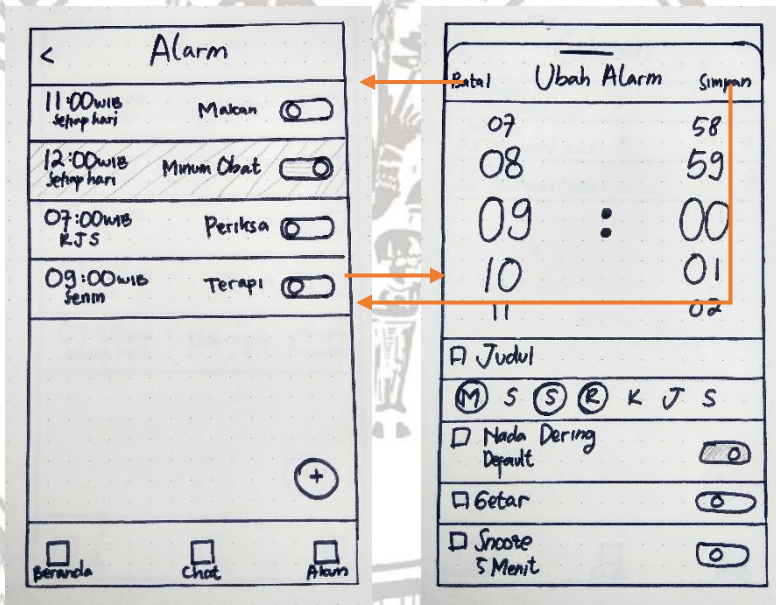 < Alarm
11:00 WIB
Setiap hari
Makan
12:00 WIB
Setiap hari
Minum Obat
07:00 WIB
RJS
Periksa
09:00 WIB
Senin
Terapi
+
Beranda
Chat
Alarm
Batal Ubah Alarm Simpan
07 58
08 59
09 : 00
10 01
11 02
Judul
M S S R K J S
Nada Dering
Default
Getar
Snooze
5 Menit